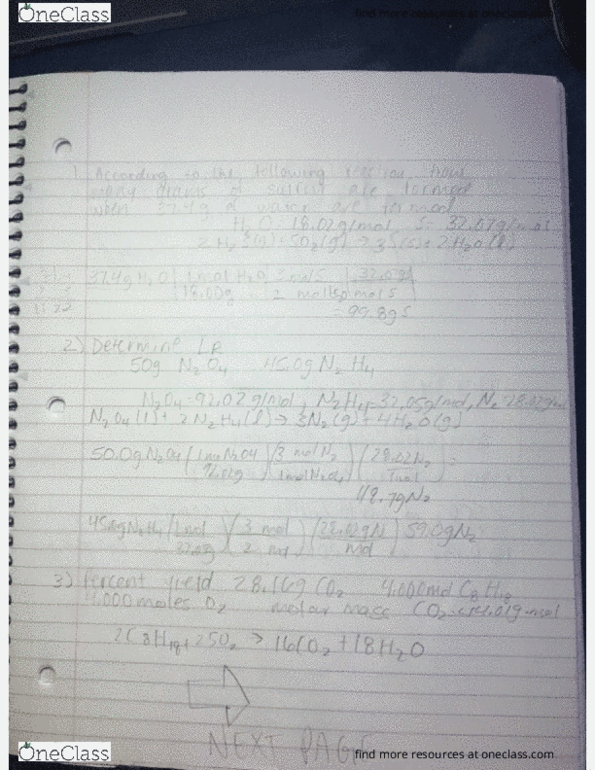 OneClass
find more resources at oneclass.com
1. According to the following reaction, how
many grams of sulfur are formed
when 37.4g of water are formed
H2O = 18.02g/mol, S = 32.07g/mol
2H2S(g) + SO2(g) → 3S(s) + 2H2O(l)
37.4g H2O | 1mol H2O | 3 mol S | 32.07g
2 mol 1 mol S
= 99.8g S
2) Determine LR
50g N2O4 45.0g N2H4
N2O4 = 92.02 g/mol, N2H4 = 32.05g/mol, N2 28.02g/mol
N2O4(l) + 2N2H4(l) → 3N2(g) + 4H2O(g)
50.0g N2O4 (1mol N2O4) (3 mol N2) (28.02 N2) =
1mol N2O4 1mol
48.7g N2
45.0g N2H4 (1mol) (3 mol) (28.02g N) 59.0g N2
2 mol mol
3) Percent yield 28.16g CO2 4.000mol C8H18
4.000 moles O2 molar mass CO2
2C8H18 + 25O2 → 16CO2 + 18H2O
NEXT PAGE
OneClass
find more resources at oneclass.com